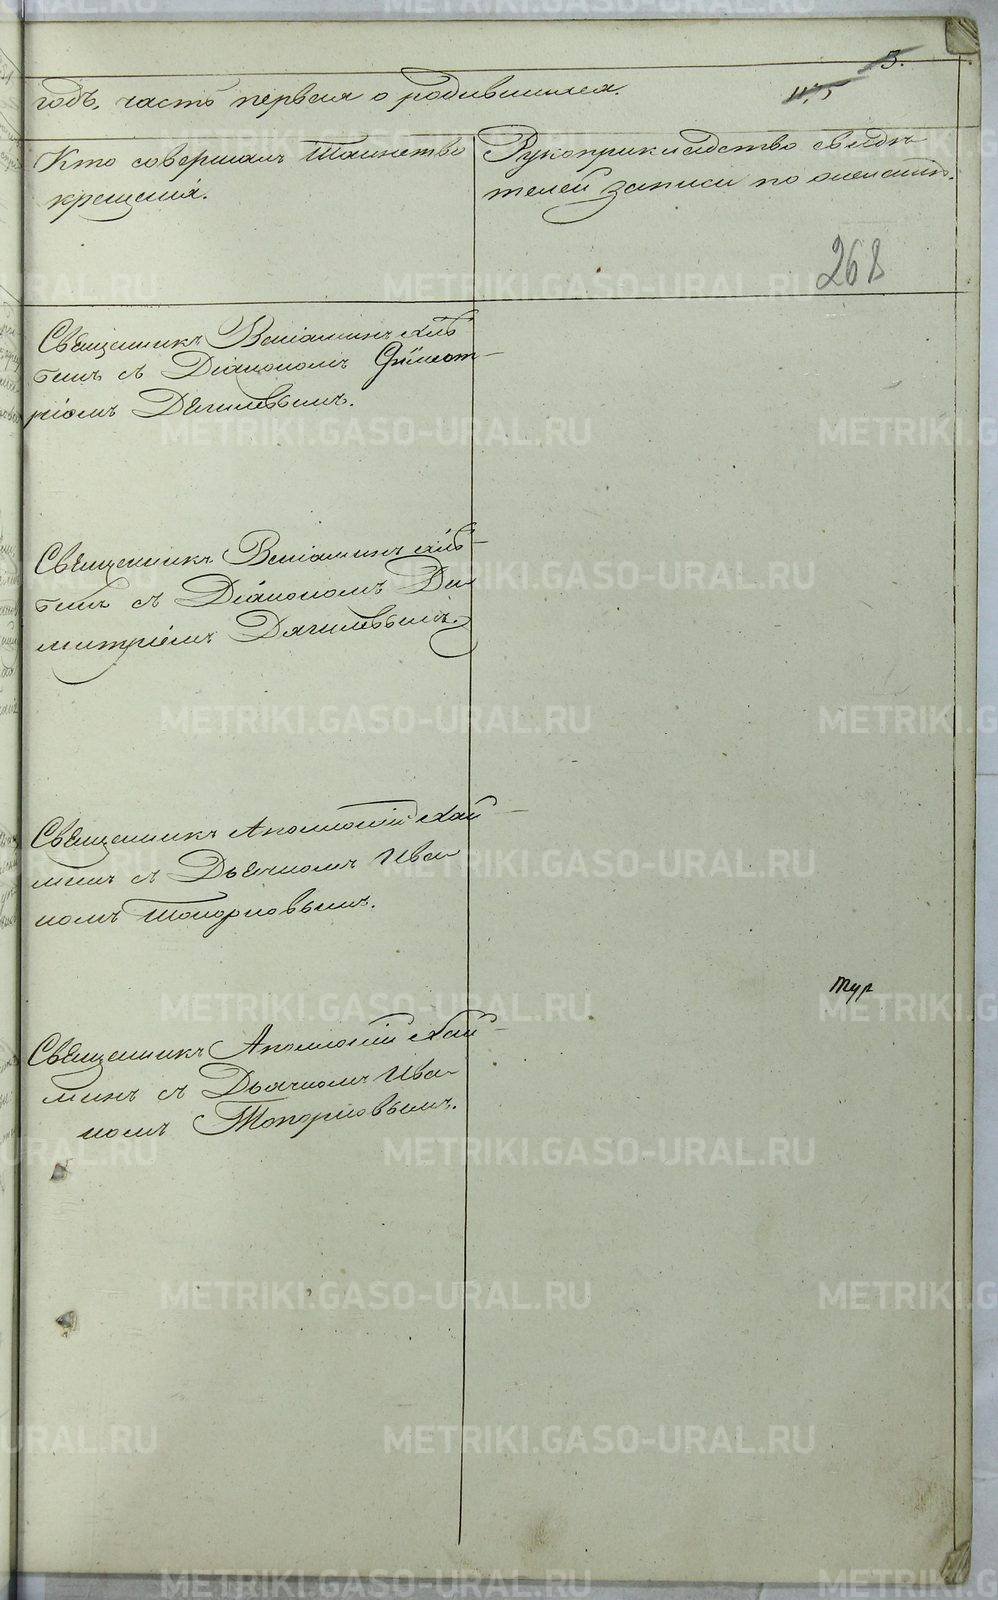 3.
годъ, часть первая о родившихся.
Кто совершалъ таинство
крещенія.
Рукоприкладство свидѣ-
телей записи по желанію.
268
Священникъ Веніаминъ
съ Діакономъ Димит-
ріемъ Дягилевымъ.
Священникъ Веніаминъ
съ Діакономъ Ди-
митріемъ Дягилевымъ.
Священникъ Аполлоній Хай-
минъ съ Дьячкомъ Ива-
номъ Топорковымъ.
тур
Священникъ Аполлоній Хай-
минъ съ Дьячкомъ Ива-
номъ Топорковымъ.
METRIKI.GASO-URAL.RU